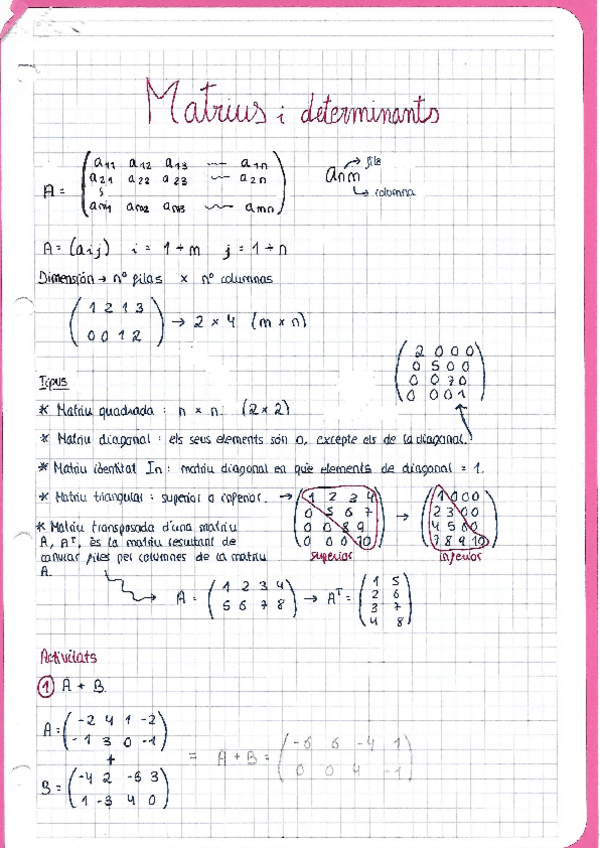 Matrius i determinants
A = ( a11 a12 a13 — a1n
a21 a22 a23 — a2n
am1 am2 am3 — amn )
anm → fila
↳ columna
A = (aij) i = 1 ÷ m j = 1 ÷ n
Dimensión → nº filas × nº columnas
( 1 2 1 3
0 0 1 2 ) → 2 × 4 (m × n)
( 2 0 0 0
0 5 0 0
0 0 7 0
0 0 0 1 )
Tipus
* Matriu quadrada : n × n. (2 × 2)
* Matriu diagonal : els seus elements són 0, excepte els de la diagonal.
* Matriu identitat In : matriu diagonal en què elements de diagonal = 1.
* Matriu triangular : superior o inferior. →
( 1 2 3 4
0 5 6 7
0 0 8 9
0 0 0 10 )
superior
→ ( 1 0 0 0
2 3 0 0
4 5 6 0
7 8 9 10 )
inferior
* Matriu transposada d'una matriu
A, Aᵀ, és la matriu resultant de
canviar files per columnes de la matriu
A.
A = ( 1 2 3 4
5 6 7 8 ) → Aᵀ = ( 1 5
2 6
3 7
4 8 )
Activitats
1 A + B.
A = ( -2 4 1 -2
-1 3 0 -1 )
+
B = ( -4 2 -6 3
1 -3 4 0 )
= A + B = ( -6 6 -4 1
0 0 4 -1 )